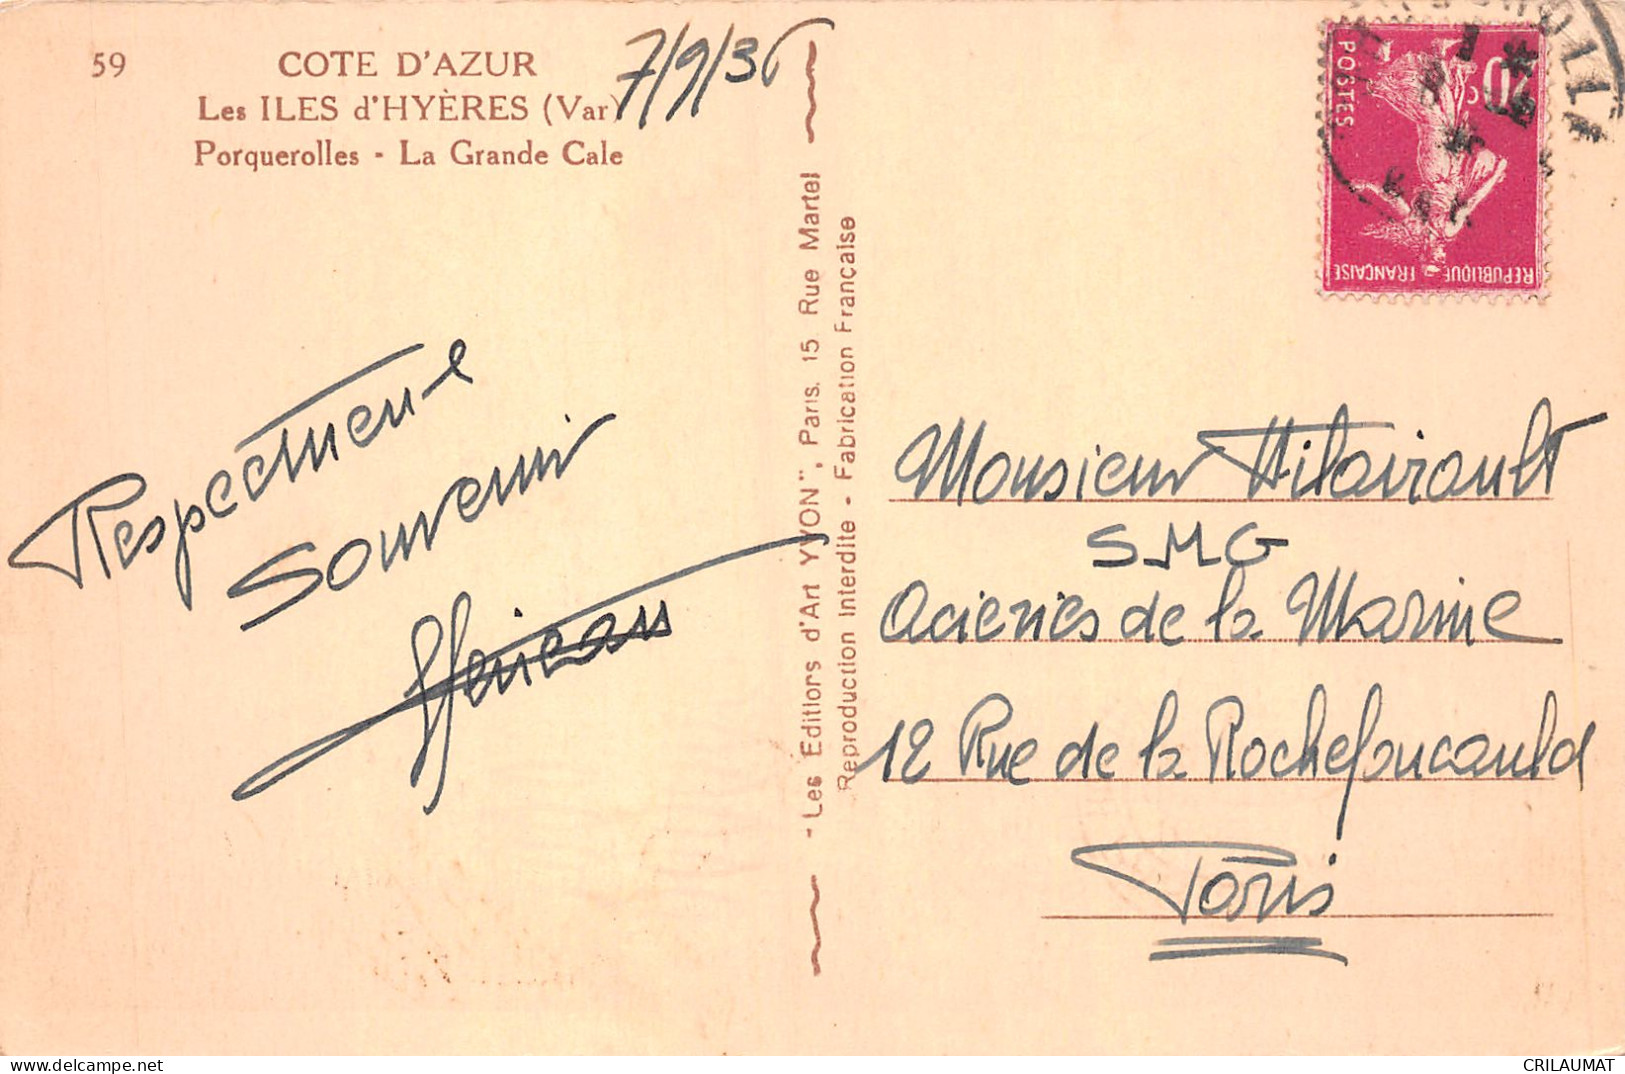 59
COTE D'AZUR
Les ILES d'HYÈRES (Var)
Porquerolles - La Grande Cale
7/9/36
Respectueux
Souvenir
- Les Editions d'Art YVON", Paris. 15 Rue Martel
Reproduction Interdite - Fabrication Française
20c
POSTES
REPUBLIQUE FRANÇAISE
Monsieur Hilairault
SMG
Acieries de la Marine
12 Rue de la Rochefoucauld
Paris
CRILAUMAT